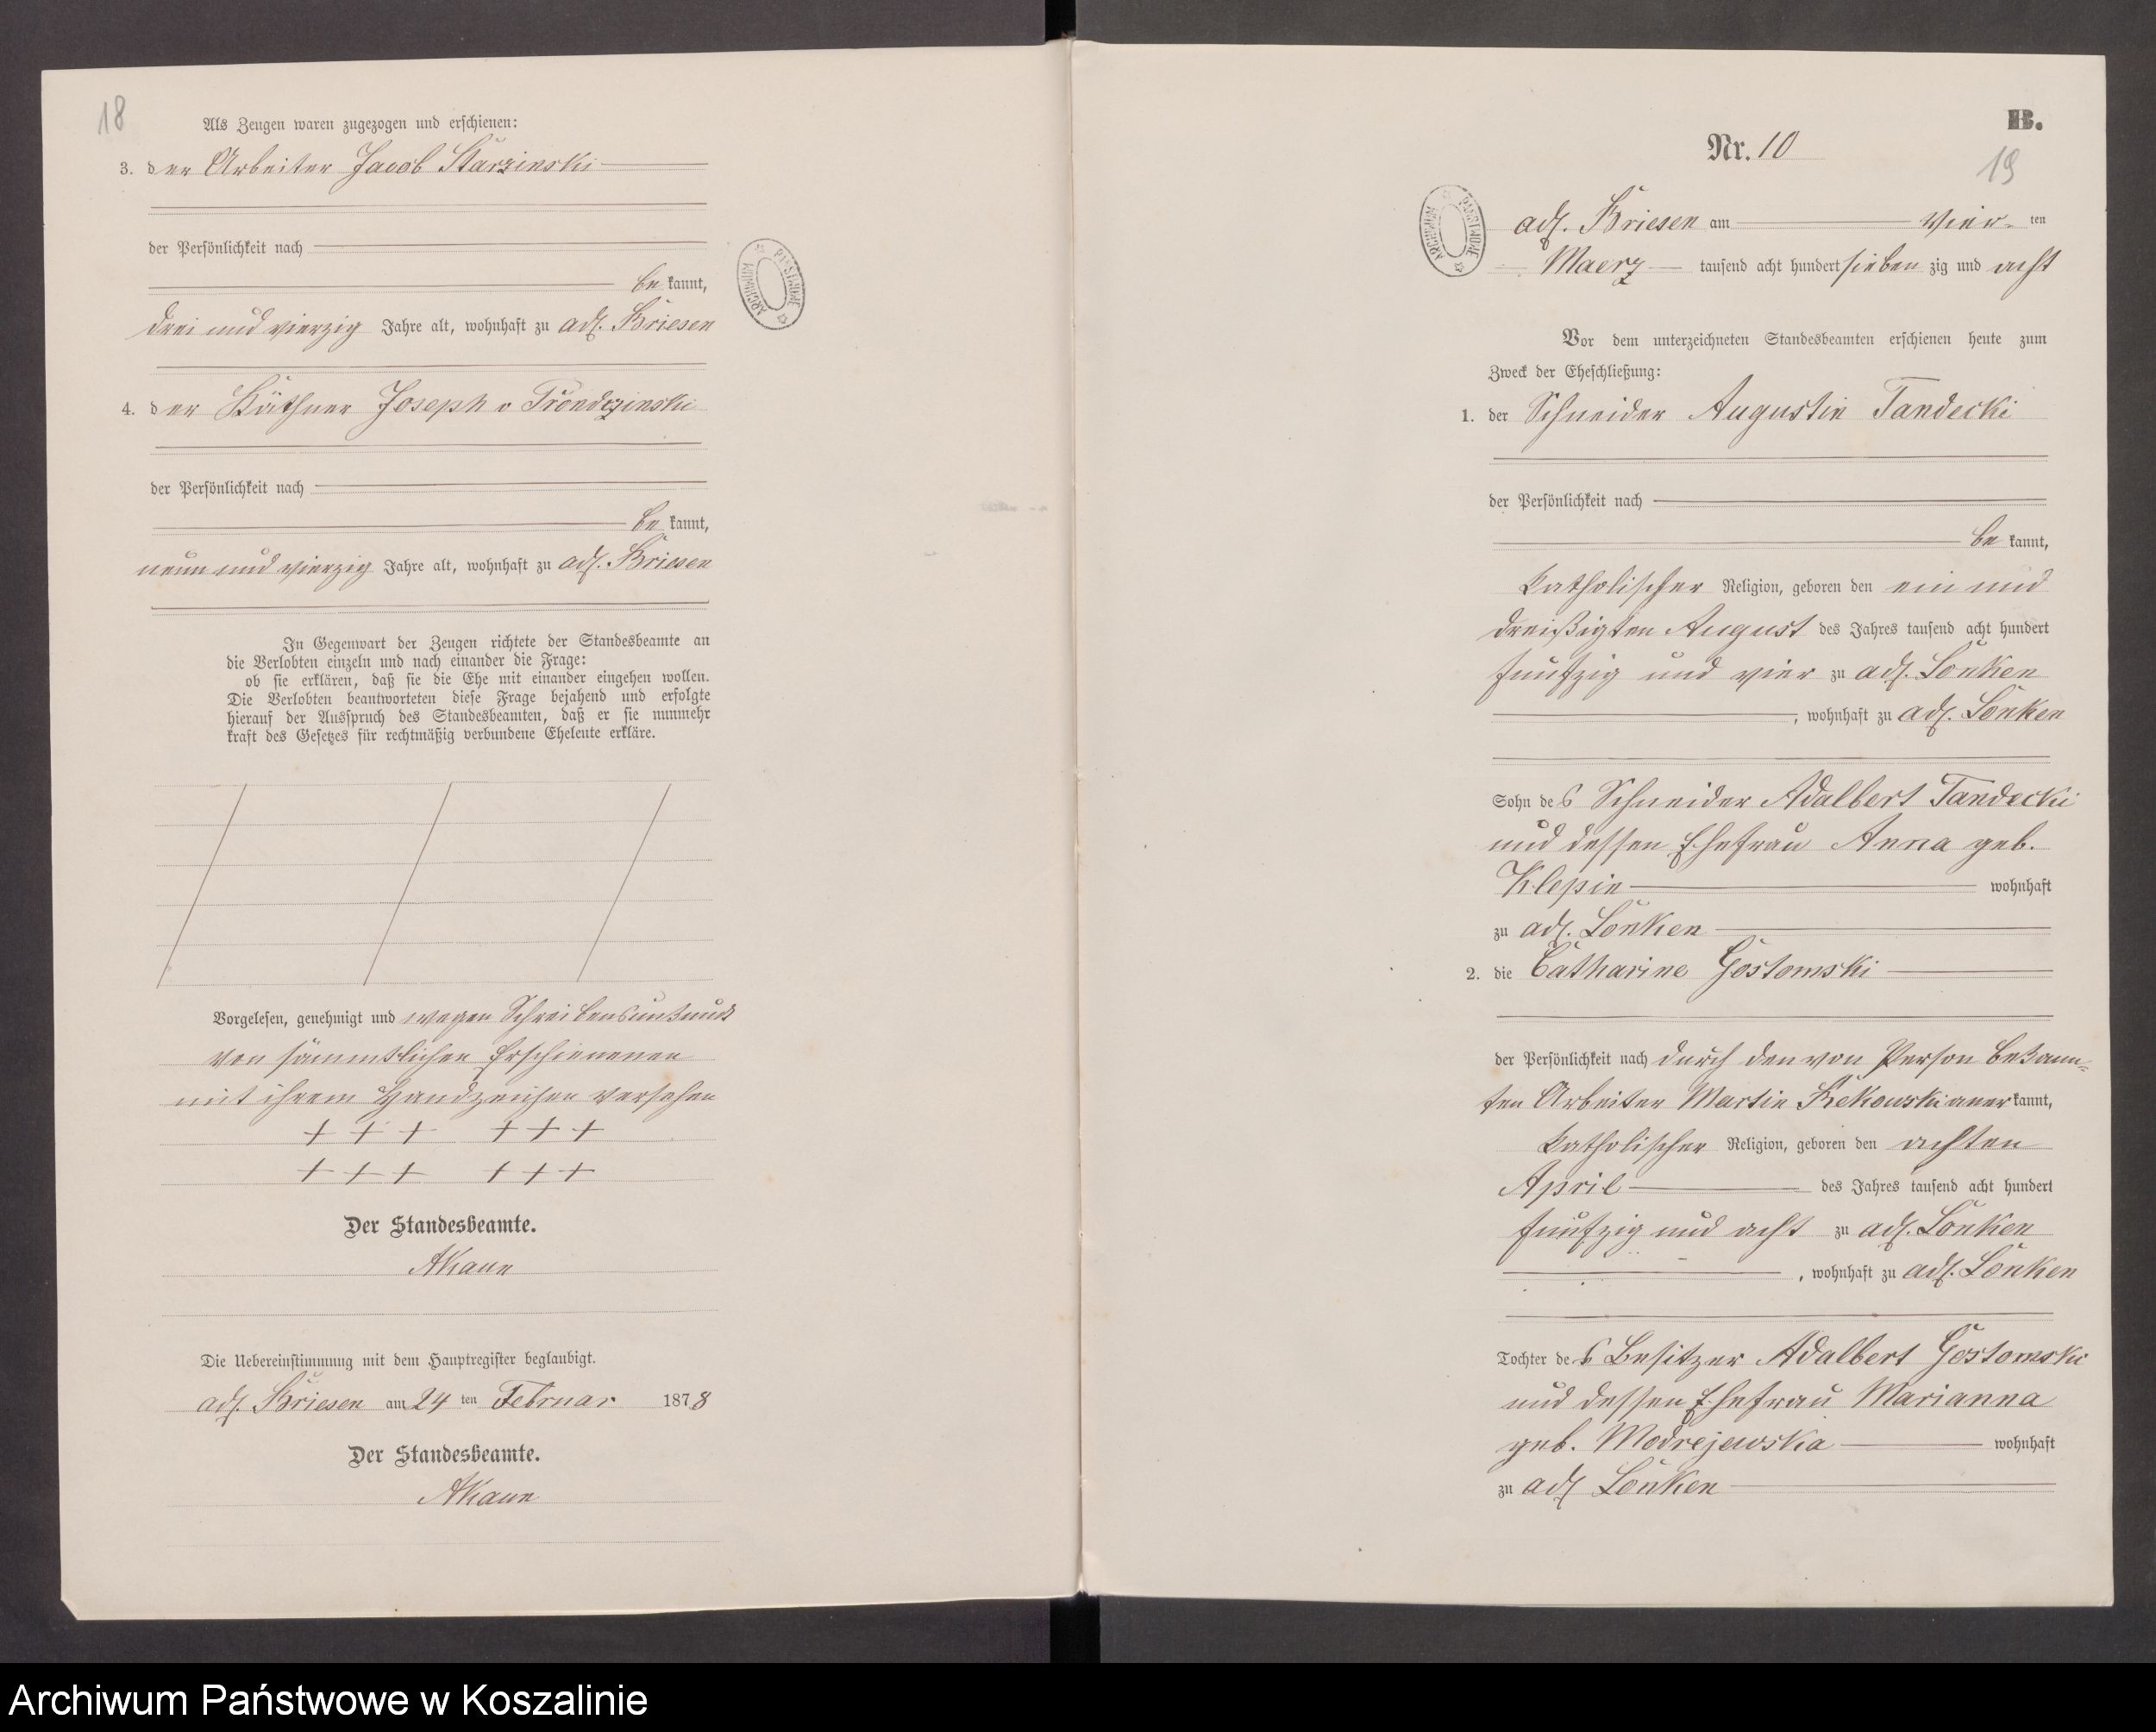 18
Als Zeugen waren zugezogen und erschienen:
3. der Arbeiter Jacob Starzinski
der Persönlichkeit nach
be kannt,
drei und vierzig Jahre alt, wohnhaft zu adl. Briesen
4. der Käthner Joseph v Trondczinski
der Persönlichkeit nach
be kannt,
neun und vierzig Jahre alt, wohnhaft zu adl. Briesen
In Gegenwart der Zeugen richtete der Standesbeamte an
die Verlobten einzeln und nach einander die Frage:
ob sie erklären, daß sie die Ehe mit einander eingehen wollen.
Die Verlobten beantworteten diese Frage bejahend und erfolgte
hierauf der Ausspruch des Standesbeamten, daß er sie nunmehr
kraft des Gesetzes für rechtmäßig verbundene Eheleute erkläre.
Vorgelesen, genehmigt und wegen Schreibensunkunde
von sämmtlichen Erschienenen
mit ihrem Handzeichen versehen
+ + + + + +
+ + + + + +
Der Standesbeamte.
Die Uebereinstimmung mit dem Hauptregister beglaubigt.
adl. Briesen am 24 ten Februar 1878
Der Standesbeamte.
ARCHIWUM PAŃSTWOWE
B.
Nr. 10
19
ARCHIWUM PAŃSTWOWE
adl. Briesen am vier- ten
Maerz tausend acht hundert sieben zig und acht
Vor dem unterzeichneten Standesbeamten erschienen heute zum
Zweck der Eheschließung:
1. der Schneider Augustin Tandecki
der Persönlichkeit nach
be kannt,
katholischer Religion, geboren den ein und
dreißigten August des Jahres tausend acht hundert
funfzig und vier zu adl. Lonken
, wohnhaft zu adl. Lonken
Sohn des Schneider Adalbert Tandecki
und dessen Ehefrau Anna geb.
Klepin wohnhaft
zu adl. Lonken
2. die Catharine Gostomski
der Persönlichkeit nach durch den von Person bekann-
ten Arbeiter Martin Kekowski aner kannt,
katholischer Religion, geboren den achten
April des Jahres tausend acht hundert
funfzig und acht zu adl. Lonken
, wohnhaft zu adl. Lonken
Tochter des Besitzer Adalbert Gostomski
und dessen Ehefrau Marianna
geb. Modrejewska wohnhaft
zu adl Lonken
Archiwum Państwowe w Koszalinie